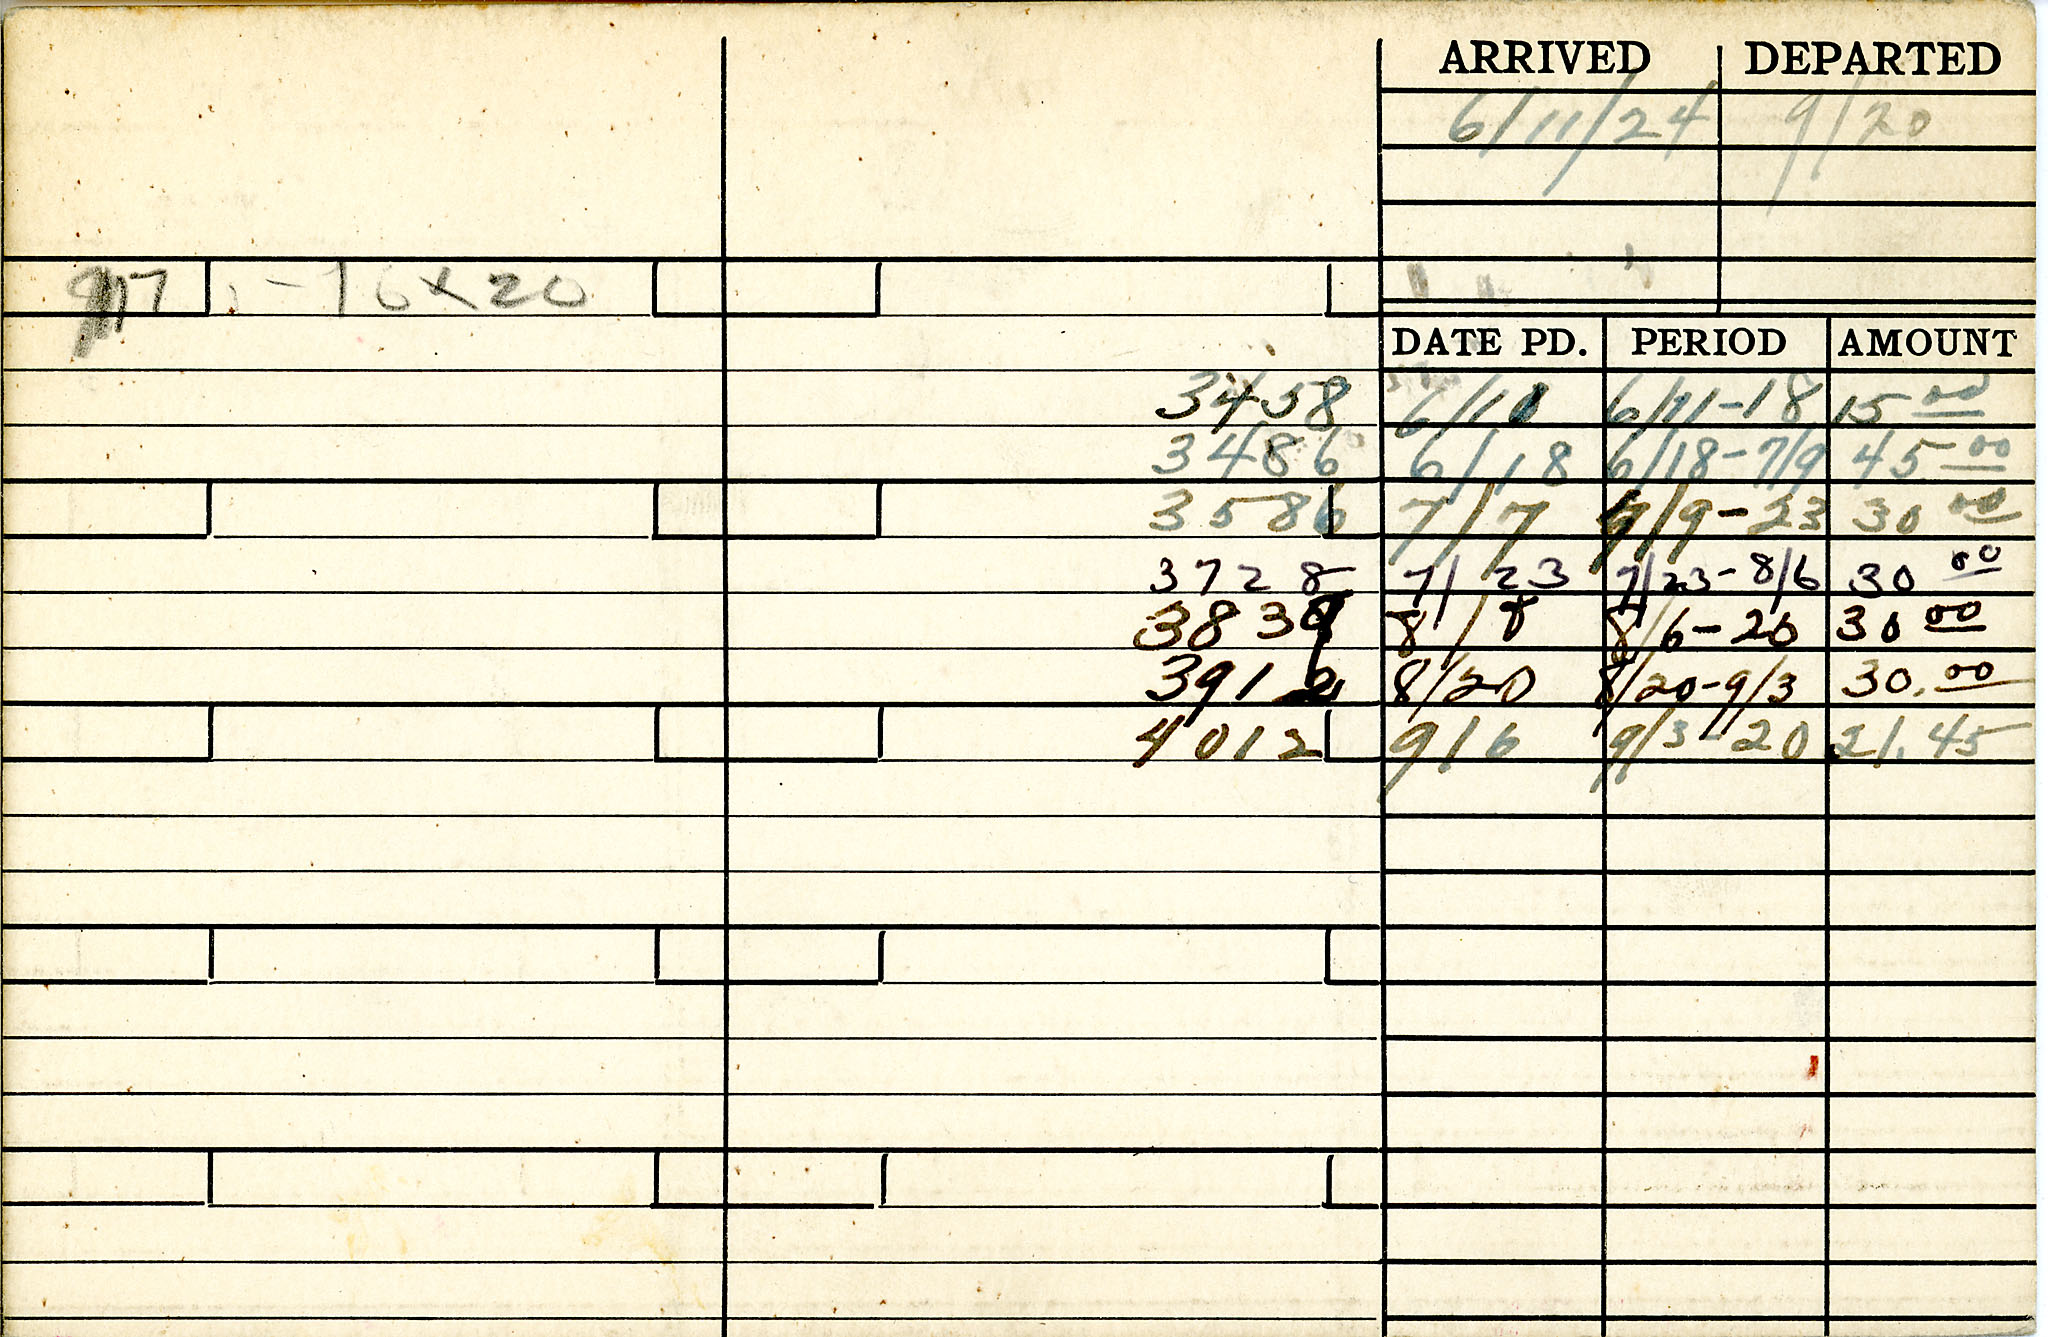 ARRIVED DEPARTED
6/11/24 9/20
- 16x20
DATE PD. PERIOD AMOUNT
3458 6/10 6/11-18 15 00
3486 6/18 6/18-7/9 45 00
3586 7/7 7/9-23 30 00
3728 7/23 7/23-8/6 30 00
3839 8/8 8/6-20 30 00
3912 8/20 8/20-9/3 30.00
4012 9/6 9/3-20 21.45